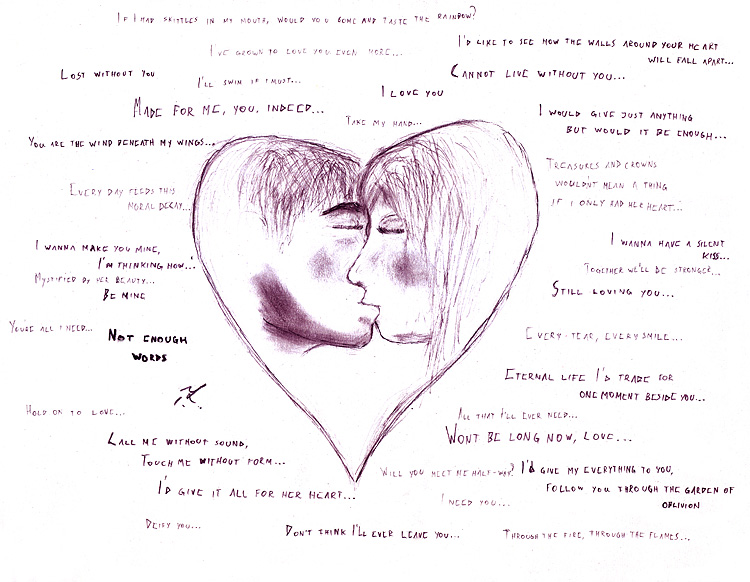 If I had skittles in my mouth, would you come and taste the rainbow?
I've grown to love you even more...
I'd like to see how the walls around your heart
will fall apart...
Lost without you
I'll swim if I must...
Cannot live without you...
I love you
Made for me, you, indeed...
Take my hand...
I would give just anything
but would it be enough...
You are the wind beneath my wings...
Treasures and crowns
wouldn't mean a thing
if I only had her heart...
Every day feeds this
moral decay...
I wanna make you mine,
I'm thinking how...
I wanna have a silent
kiss...
Mystified by her beauty...
Together we'll be stronger...
Be mine
Still loving you...
You're all I need...
Not enough
words
Every tear, every smile...
Eternal life I'd trade for
one moment beside you...
Hold on to love...
All that I'll ever need...
Call me without sound,
Touch me without form...
Wont be long now, love...
Will you meet me half-way?
I'd give my everything to you,
follow you through the garden of
oblivion
I'd give it all for her heart...
I need you...
Deify you...
Don't think I'll ever leave you...
Through the fire, through the flames...